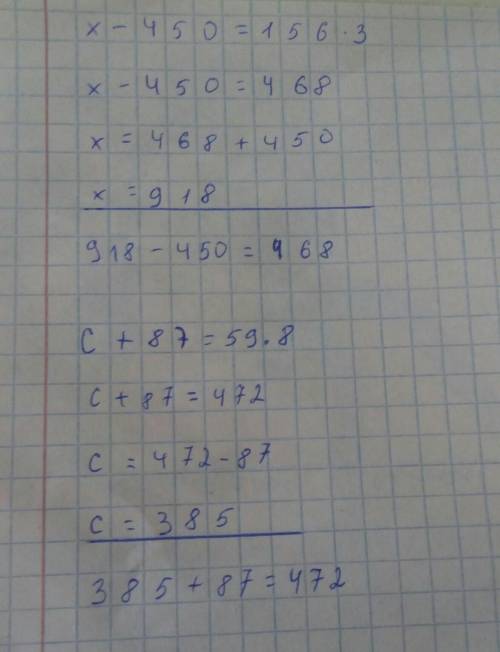 x - 450 = 156 · 3
x - 450 = 468
x = 468 + 450
x = 918
918 - 450 = 468
c + 87 = 59 · 8
c + 87 = 472
c = 472 - 87
c = 385
385 + 87 = 472